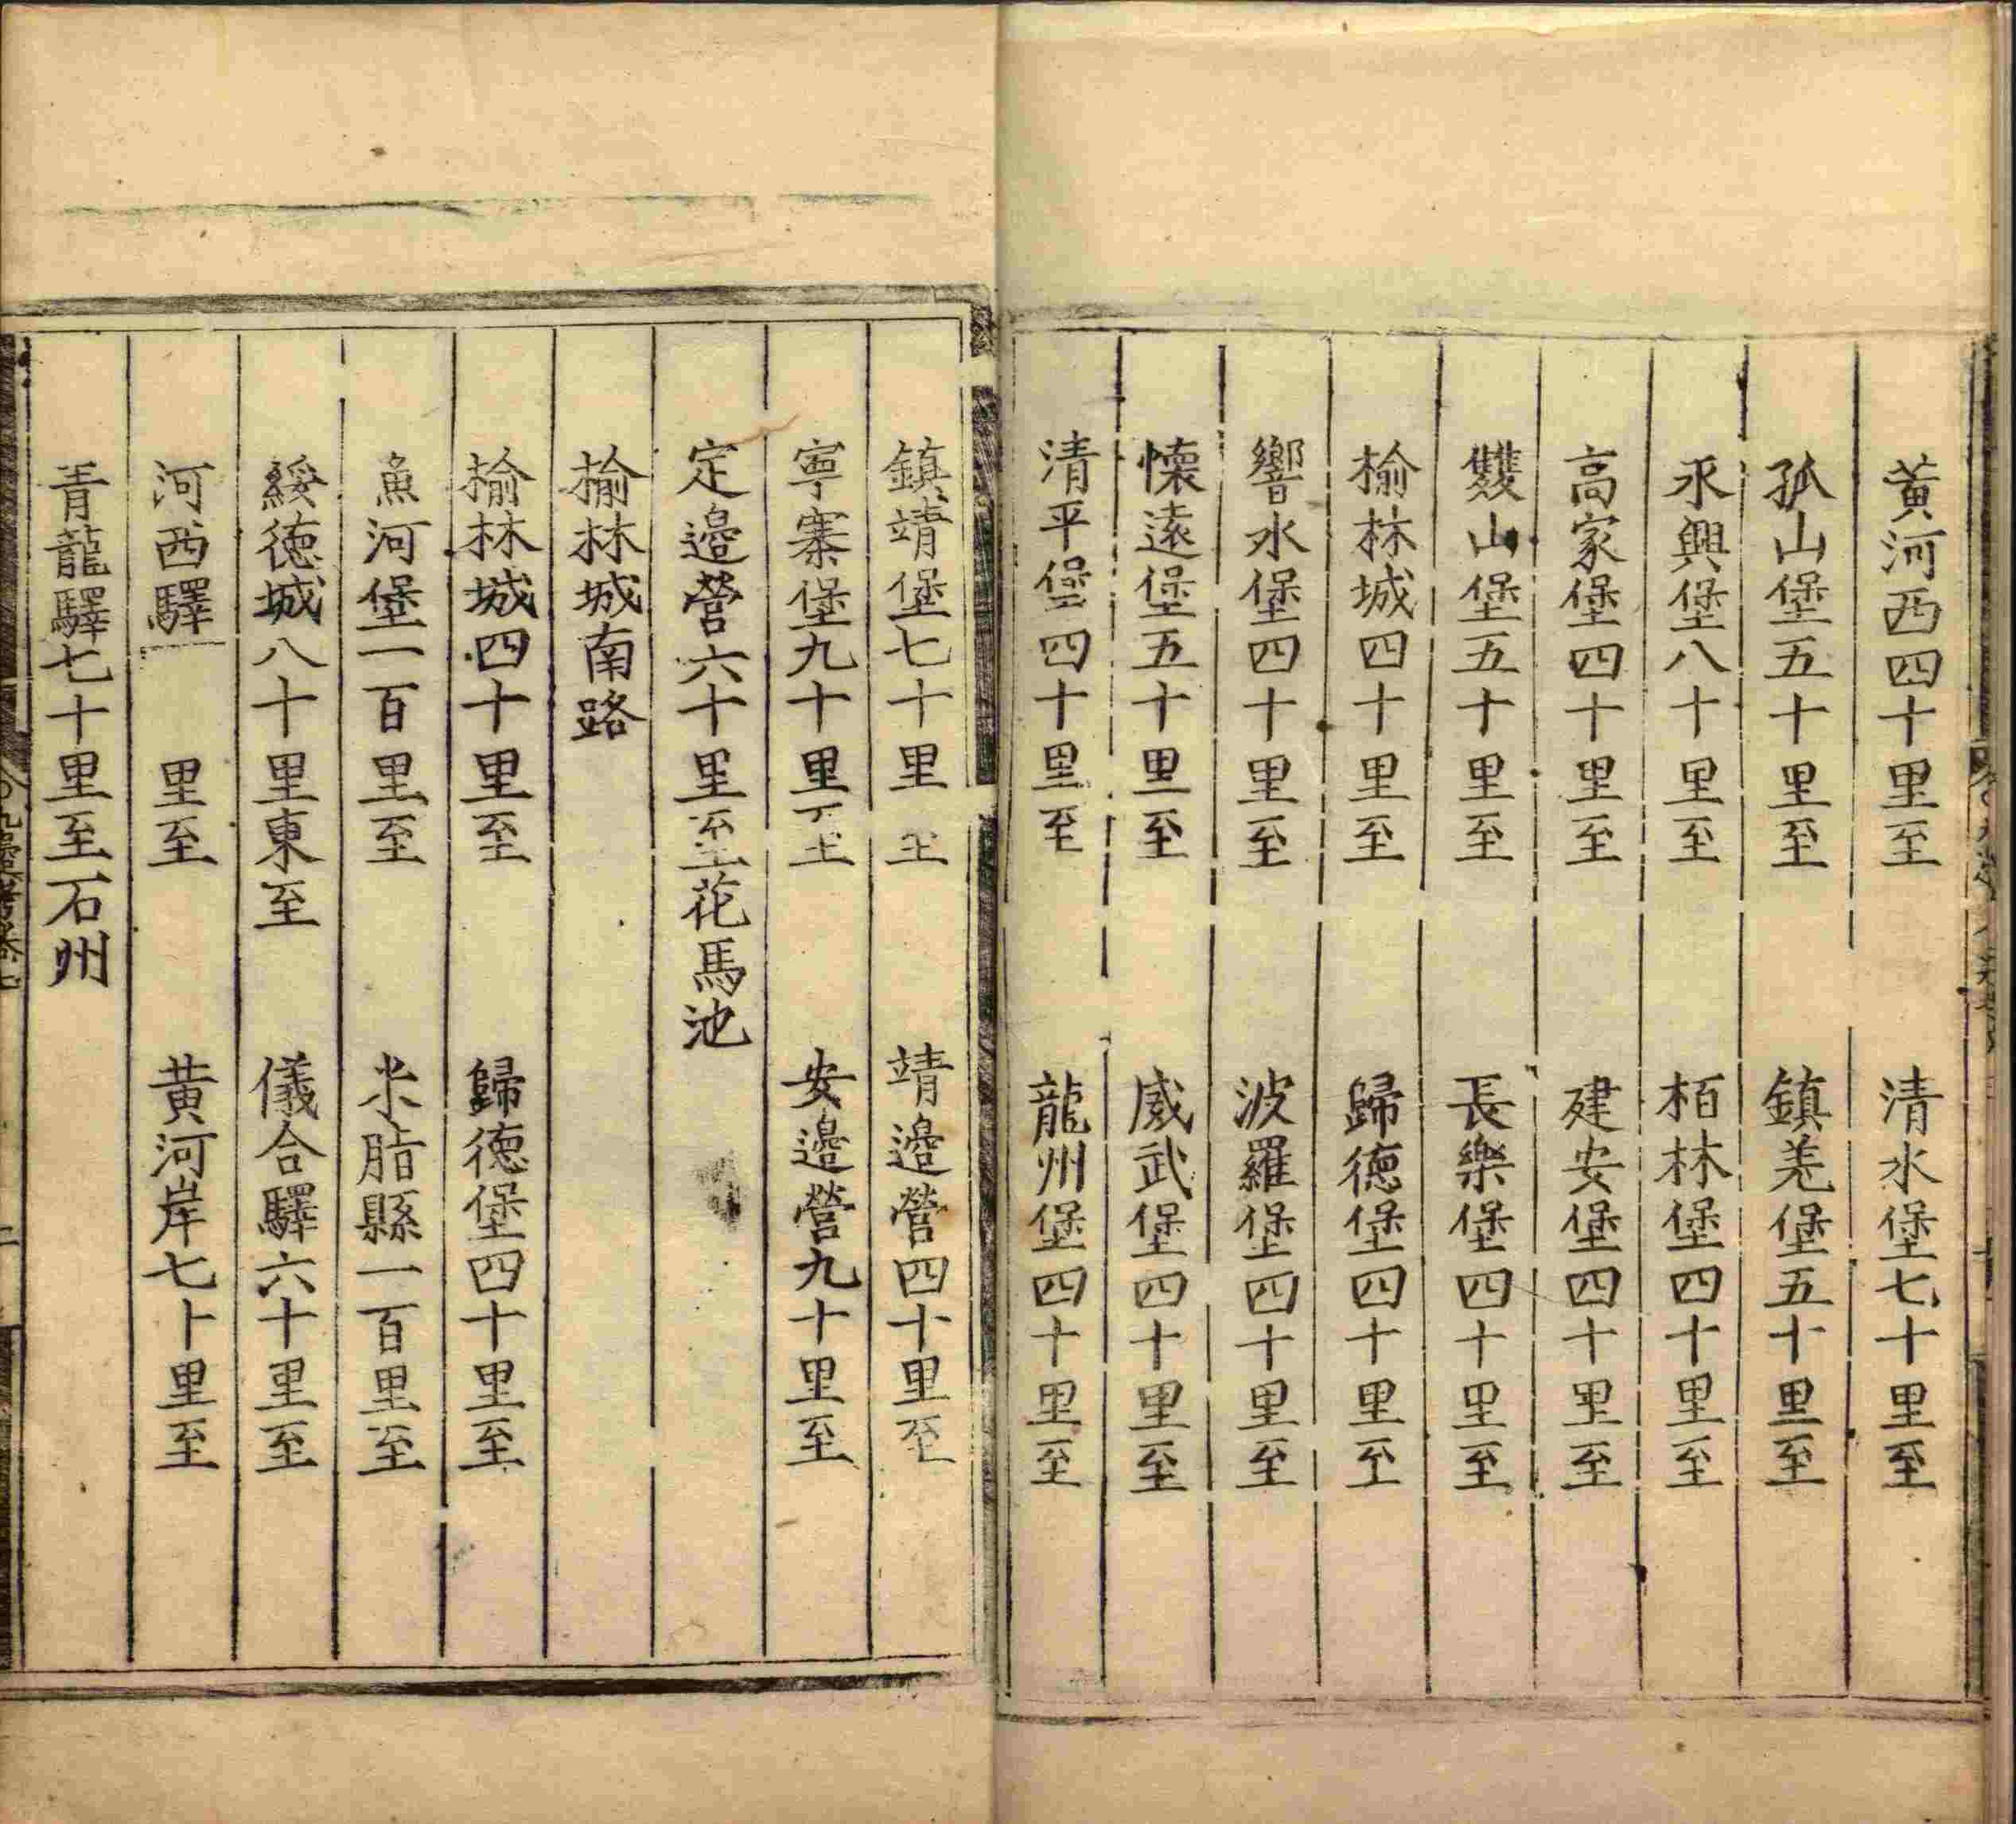 黃河西四十里至　清水堡七十里至
孤山堡五十里至　鎮羌堡五十里至
永興堡八十里至　栢林堡四十里至
高家堡四十里至　建安堡四十里至
雙山堡五十里至　長樂堡四十里至
榆林城四十里至　歸德堡四十里至
響水堡四十里至　波羅堡四十里至
懷遠堡五十里至　威武堡四十里至
清平堡四十里至　龍州堡四十里至
鎮靖堡七十里至　靖邉營四十里至
寧寨堡九十里至　安邉營九十里至
定邉營六十里至花馬池
榆林城南路
榆林城四十里至　歸德堡四十里至
魚河堡一百里至　米脂縣一百里至
綏德城八十里東至　儀合驛六十里至
河西驛　里至　黃河岸七十里至
青龍驛七十里至石州
九邊考卷七